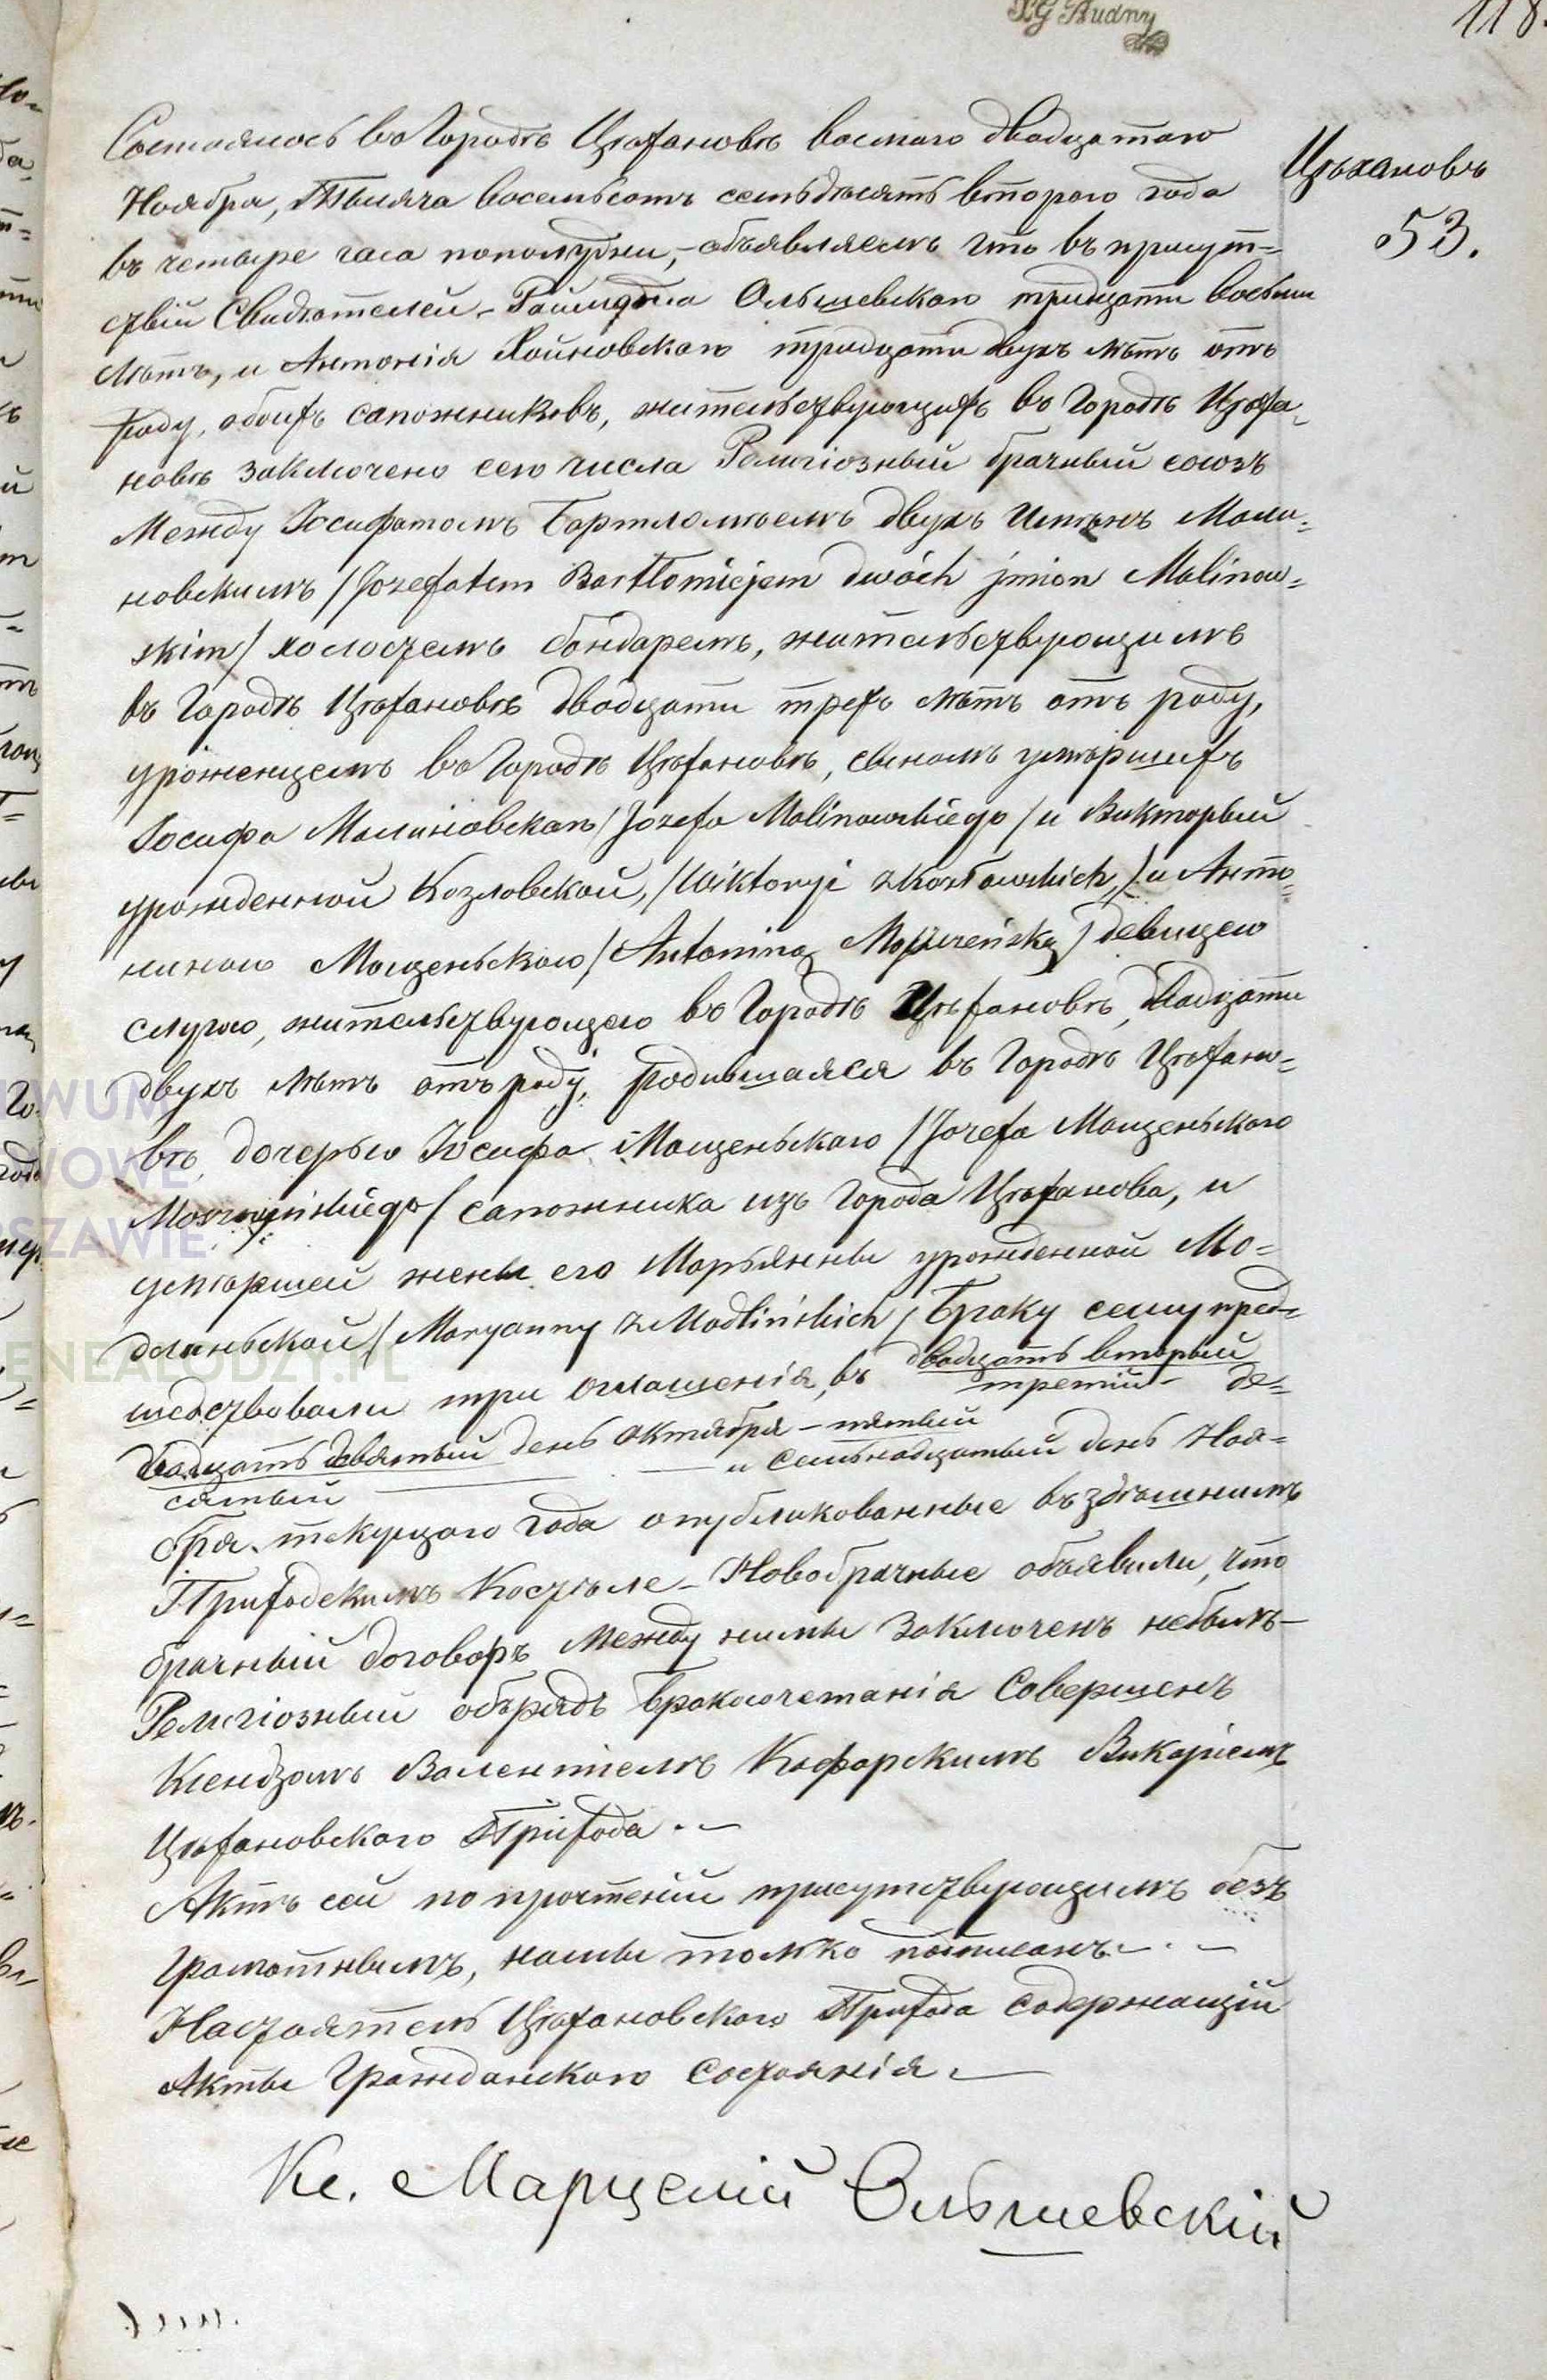 118.
Цѣхановъ
53.
Состоялось въ Городѣ Цѣхановѣ восмаго двадцатаго
Ноября, Тысяча восемьсотъ семьдѣсятъ втораго года
въ четыре часа пополудни,- объявляемъ что въ присут=
ствіи Свидѣтелей - Раймунда Ольшевскаго тридцати восьми
лѣтъ, и Антонія Хойновскаго тридцати двухъ лѣтъ отъ
роду, обоихъ сапожниковъ, жительствующихъ въ Городѣ Цѣха=
новѣ заключено сего числа Религіозный брачный союзъ
Между Іосифатомъ Бартломѣемъ двухъ Именъ Мали=
новскимъ /Jozefatem Bartłomiejem dwóch jmion Malinow=
skim/ холостемъ бондаремъ, жительствующимъ
въ Городѣ Цѣхановѣ двадцати трехъ лѣтъ отъ роду,
уроженцемъ въ Городѣ Цѣхановѣ, сыномъ умершихъ
Іосифа Малиновскаго /Jozefa Malinowskiego/ и Викторыи
урожденной Козловской, /Wiktoryi z Kozłowskich,/ и Анто=
ниною Мощеньскою /Antoniną Moszczeńską/ девицею
слугою, жительствующею въ Городѣ Цѣхановѣ, двадцати
двухъ лѣтъ отъ роду, родившаяся въ Городѣ Цѣхано=
вѣ, дочерью Іосифа Мощеньскаго /Jozefa Мощеньскаго
сапожника изъ Города Цѣханова, и
умершей жены его Марьянны урожденной Мо=
длиньской /Maryanny z Modlińskich/ Браку сему пред=
шедствовали три оглашенія, въ двадцать вторый
третій де=
двадцать девятый день октября - пятый
и семьнадцатый день Ноя=
сятый
бря текущаго года опубликованные въ здѣшнимъ
Приходскимъ Костѣле - Новобрачные объявили, что
брачный договоръ Между ними заключенъ небылъ -
Религіозный обрядъ бракосочетанія Совершенъ
Ксендзомъ Валентіемъ Викаріемъ
Цѣхановскаго Прихода. -
Актъ сей по прочтеніи присутствующимъ безъ
грамотнымъ, нами только подписанъ. -
Настоятель Цѣхановскаго Прихода Содержащій
Акты Гражданскаго Состоянія. -
Кс. Марцелій Ольшевскій
WUM
WOWE
SZAWIE
ENEALODZY.PL